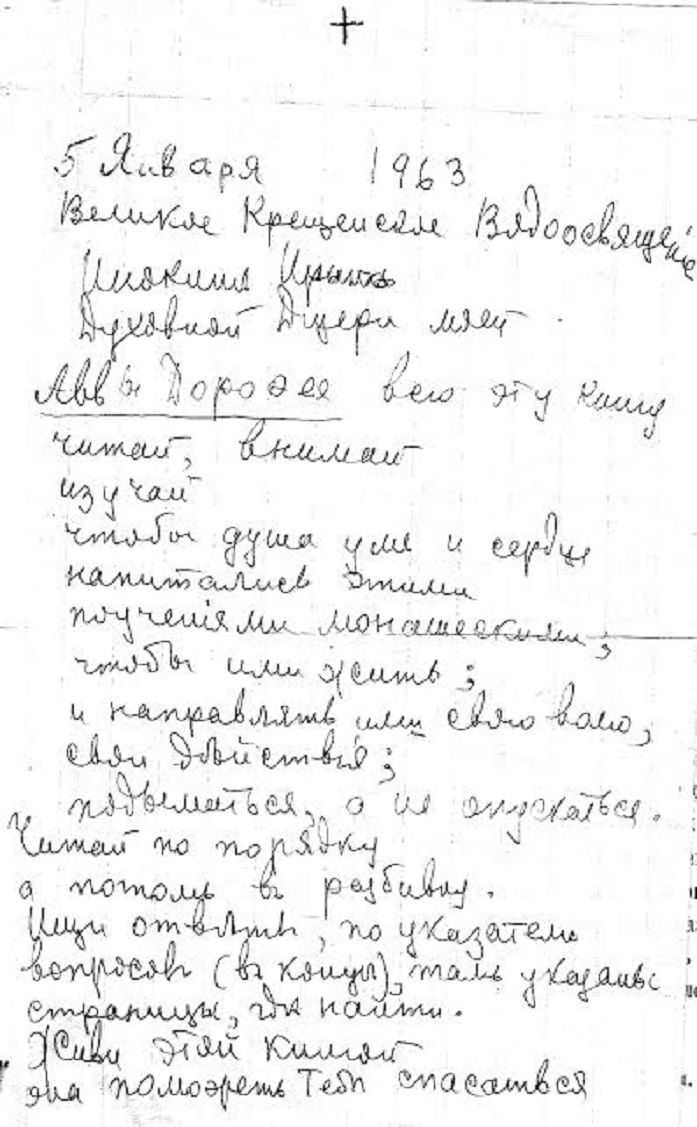 5 Января 1963
Великое Крещенское Вядоосвящение
Инокиня Ирына
Духовной Дщери моей
Аввы Дорофея всю эту книгу
читай, внимай
изучай
чтобы душа умъ и сердце
напитались этими
поученіями монашескими;
чтобы ими жить;
и направлять ими свою волю,
свои дѣйствія;
подыматься, а не опускаться.
Читай по порядку
а потомъ въ разбивку.
Ищи отвѣты, по указателю
вопросовъ (въ концѣ), тамъ указаны
страницы, гдѣ найти.
Живи этой книгой
она поможетъ Тебѣ спасаться